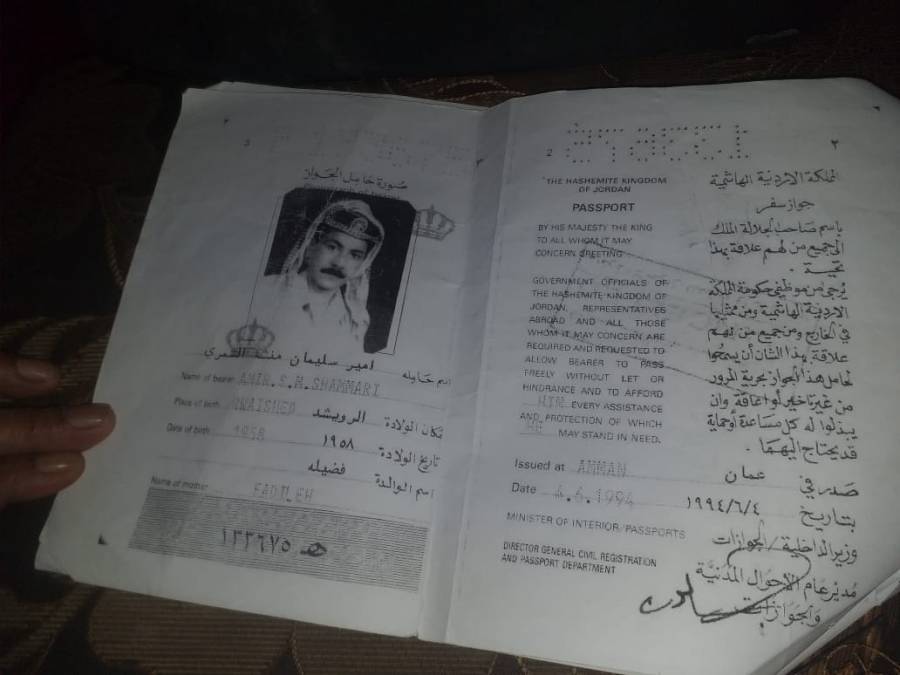 ٢
3
صورة حامل الجواز
اسم حامله امير سليمان الشمري
Name of bearer AMIR.S.M.SHAMMARI
مكان الولادة الرويشد
Place of birth
تاريخ الولادة ١٩٥٨
Date of birth 1958
اسم الوالدة فضيله
Name of mother FADILEH
٢
2
THE HASHEMITE KINGDOM
OF JORDAN
PASSPORT
BY HIS MAJESTY THE KING
TO ALL WHOM IT MAY
CONCERN GREETING
GOVERNMENT OFFICIALS OF
THE HASHEMITE KINGDOM OF
JORDAN, REPRESENTATIVES
ABROAD AND ALL THOSE
WHOM IT MAY CONCERN ARE
REQUIRED AND REQUESTED TO
ALLOW BEARER TO PASS
FREELY WITHOUT LET OR
HINDRANCE AND TO AFFORD
HIM EVERY ASSISTANCE
AND PROTECTION OF WHICH
HE MAY STAND IN NEED.
Issued at AMMAN
Date 4.6.1994
MINISTER OF INTERIOR/PASSPORTS
DIRECTOR GENERAL CIVIL REGISTRATION
AND PASSPORT DEPARTMENT
المملكة الاردنية الهاشمية
جواز سفر
باسم صاحب الجلالة الملك
الى جميع من لهم علاقة بهذا
تحية .
يُرجى من موظفي حكومة المملكة
الاردنية الهاشمية ومن ممثليها
في الخارج ومن جميع من لهم
علاقة بهذا الشأن أن يسمحوا
لحامل هذا الجواز بحرية المرور
من غير تأخير أو اعاقة وان
يبذلوا له كل مساعدة أو حماية
قد يحتاج اليهما .
صدر في عمان
بتاريخ ١٩٩٤/٦/٤
وزير الداخلية / الجوازات
مدير عام الاحوال المدنية
والجوازات